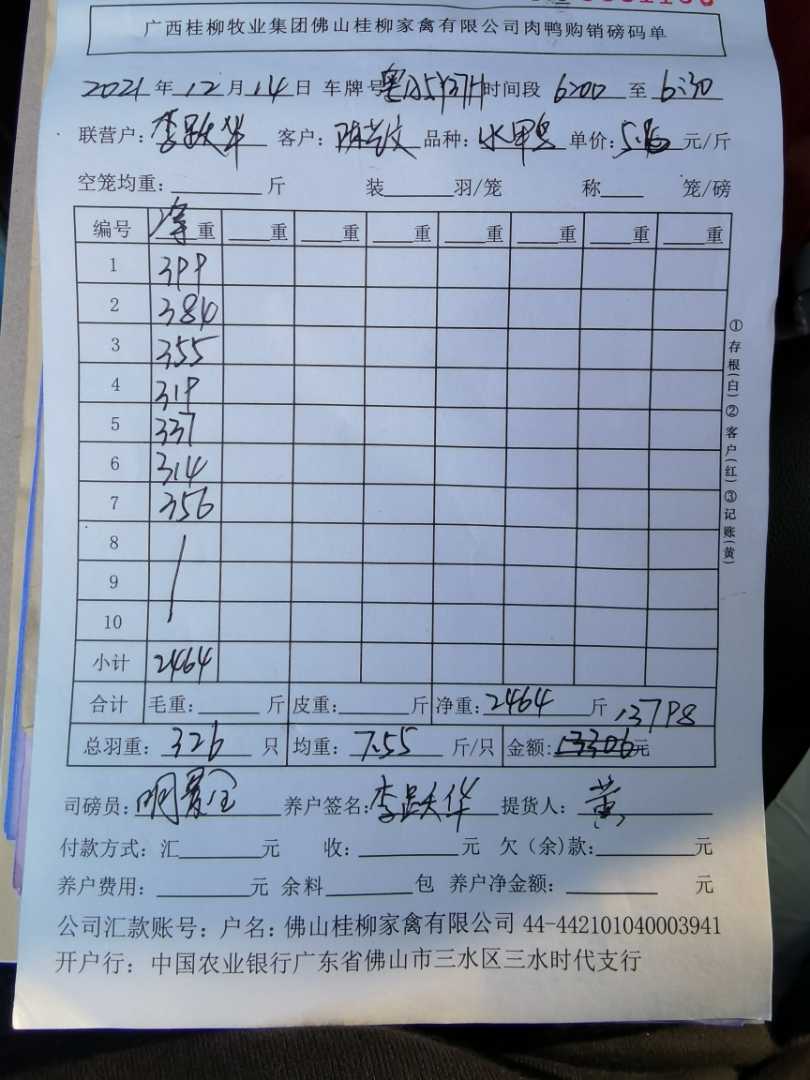 广西桂柳牧业集团佛山桂柳家禽有限公司肉鸭购销磅码单
2021 年 12 月 14 日 车牌号 时间段 6:00 至 6:30
联营户: 李跃华 客户: 品种: 水鸭 单价: 元/斤
空笼均重: 斤 装 羽/笼 称 笼/磅
编号 净重 重 重 重 重 重 重 重
1 399
2 384
3 355
4 319
5 337
6 314
7 356
8
9
10
小计 2464
合计 毛重: 斤 皮重: 斤 净重: 2464 斤 13798
总羽重: 326 只 均重: 7.55 斤/只 金额: 13306 元
司磅员: 养户签名: 李跃华 提货人: 黄
付款方式: 汇 元 收: 元 欠(余)款: 元
养户费用: 元 余料 包 养户净金额: 元
公司汇款账号: 户名: 佛山桂柳家禽有限公司 44-442101040003941
开户行: 中国农业银行广东省佛山市三水区三水时代支行
①存根(白)②客户(红)③记账(黄)